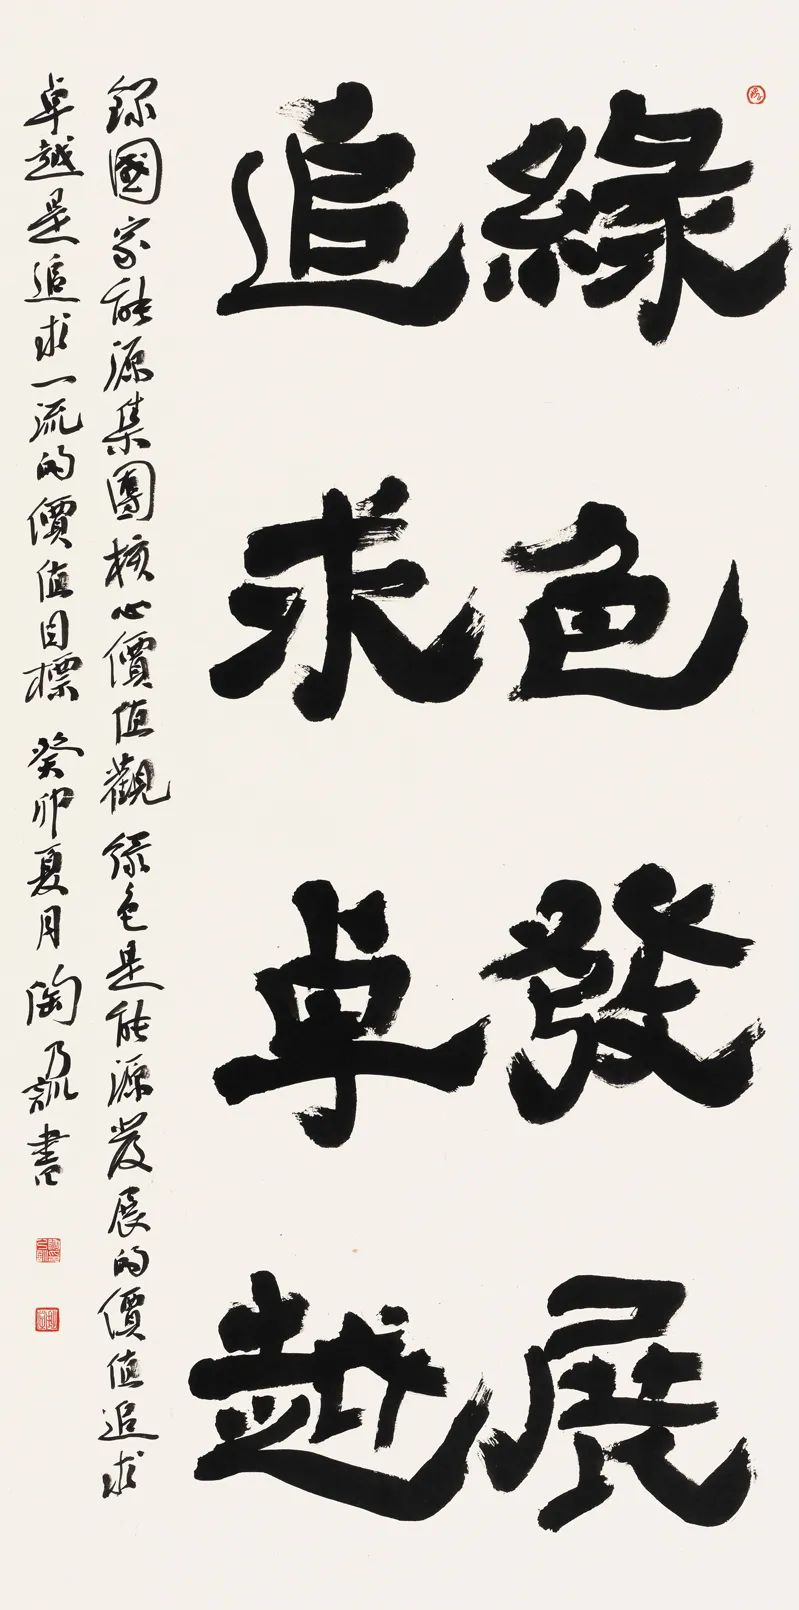 綠色發展
追求卓越
錄國家能源集團核心價值觀 綠色是能源發展的價值追求
卓越是追求一流的價值目標 癸卯夏月 陶乃書